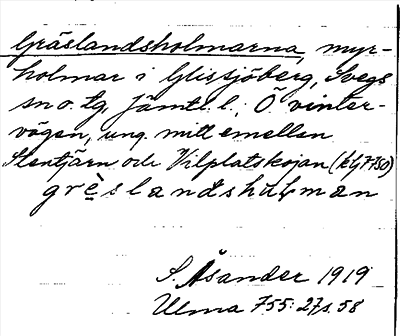 Gräslandsholmarna, myr-
holmar i Glissjöberg, Svegs
sn o. tg, Jämtl. l., Ö vinter-
vägen, ung. mitt emellan
Stentjärn och Vilplatskojan
grèslandshu̥ḷman
S. Åsander 1919
Ulma 755: 27 s. 58